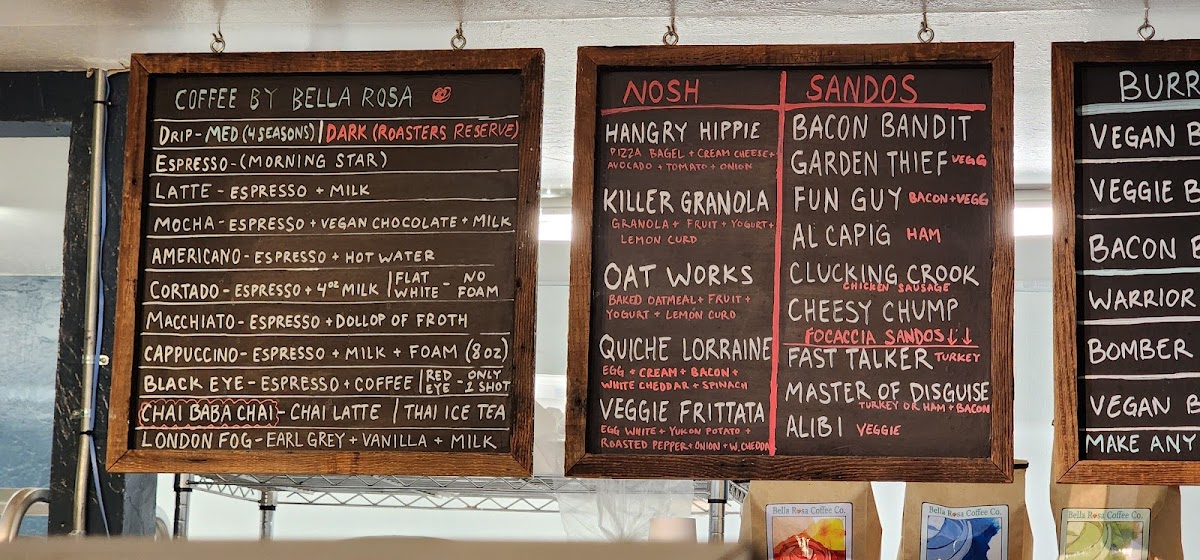 COFFEE BY BELLA ROSA
DRIP - MED (4 SEASONS) | DARK (ROASTERS RESERVE)
ESPRESSO - (MORNING STAR)
LATTE - ESPRESSO + MILK
MOCHA - ESPRESSO + VEGAN CHOCOLATE + MILK
AMERICANO - ESPRESSO + HOT WATER
CORTADO - ESPRESSO + 4oz MILK | FLAT WHITE - NO FOAM
MACCHIATO - ESPRESSO + DOLLOP OF FROTH
CAPPUCCINO - ESPRESSO + MILK + FOAM (8oz)
BLACK EYE - ESPRESSO + COFFEE | RED EYE - ONLY 1 SHOT
CHAI BABA CHAI - CHAI LATTE / THAI ICE TEA
LONDON FOG - EARL GREY + VANILLA + MILK
NOSH
HANGRY HIPPIE
PIZZA BAGEL + CREAM CHEESE +
AVOCADO + TOMATO + ONION
KILLER GRANOLA
GRANOLA + FRUIT + YOGURT +
LEMON CURD
OAT WORKS
BAKED OATMEAL + FRUIT +
YOGURT + LEMON CURD
QUICHE LORRAINE
EGG + CREAM + BACON +
WHITE CHEDDAR + SPINACH
VEGGIE FRITTATA
EGG WHITE + YUKON POTATO +
ROASTED PEPPER + ONION + W. CHEDDA
SANDOS
BACON BANDIT
GARDEN THIEF VEGG
FUN GUY BACON + VEGG
AL CAPIG HAM
CLUCKING CROOK
CHICKEN SAUSAGE
CHEESY CHUMP
FOCACCIA SANDOS ↓↓
FAST TALKER TURKEY
MASTER OF DISGUISE
TURKEY OR HAM + BACON
ALIBI VEGGIE
BURR
VEGAN B
VEGGIE B
BACON B
WARRIOR
BOMBER
VEGAN B
MAKE ANY
Bella Rosa Coffee Co.
Bella Rosa Coffee Co.
Bella Rosa Coffee Co.